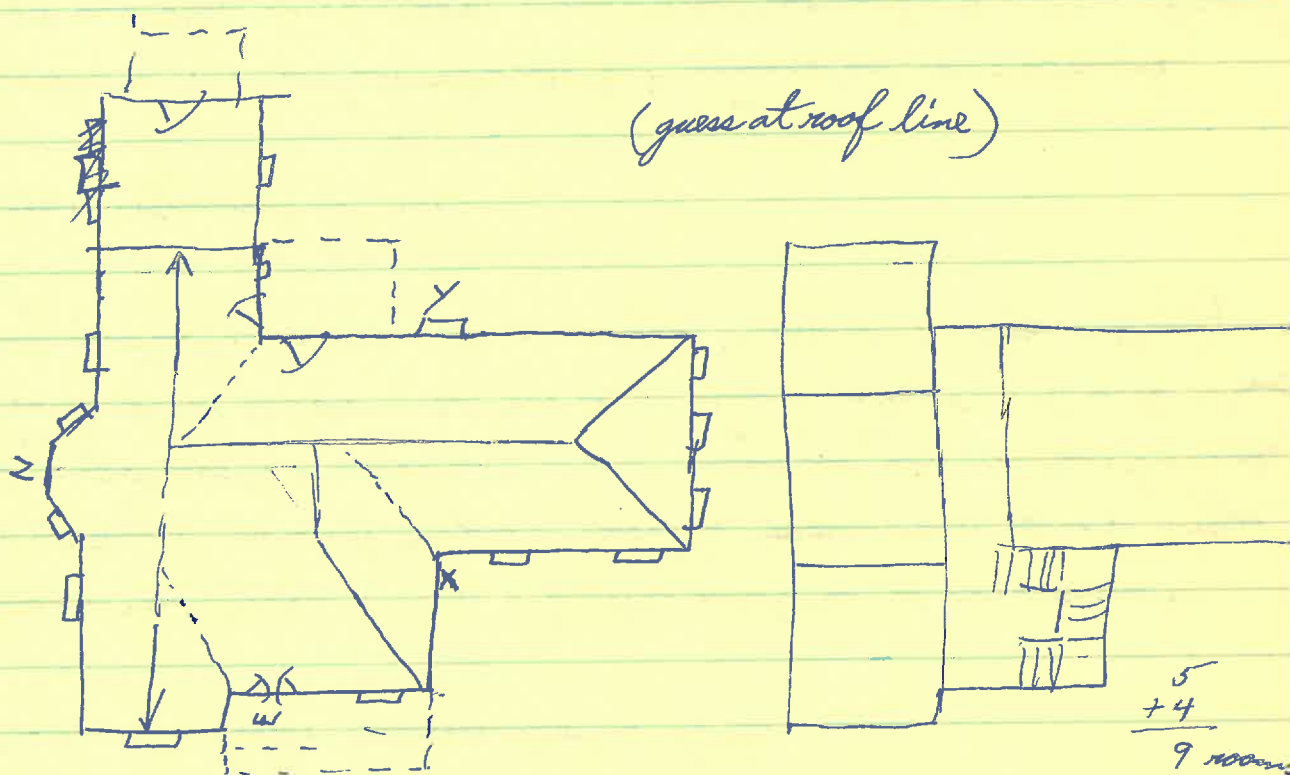 (guess at roof line)
Y
Z
X
W
5
+4
9 rooms